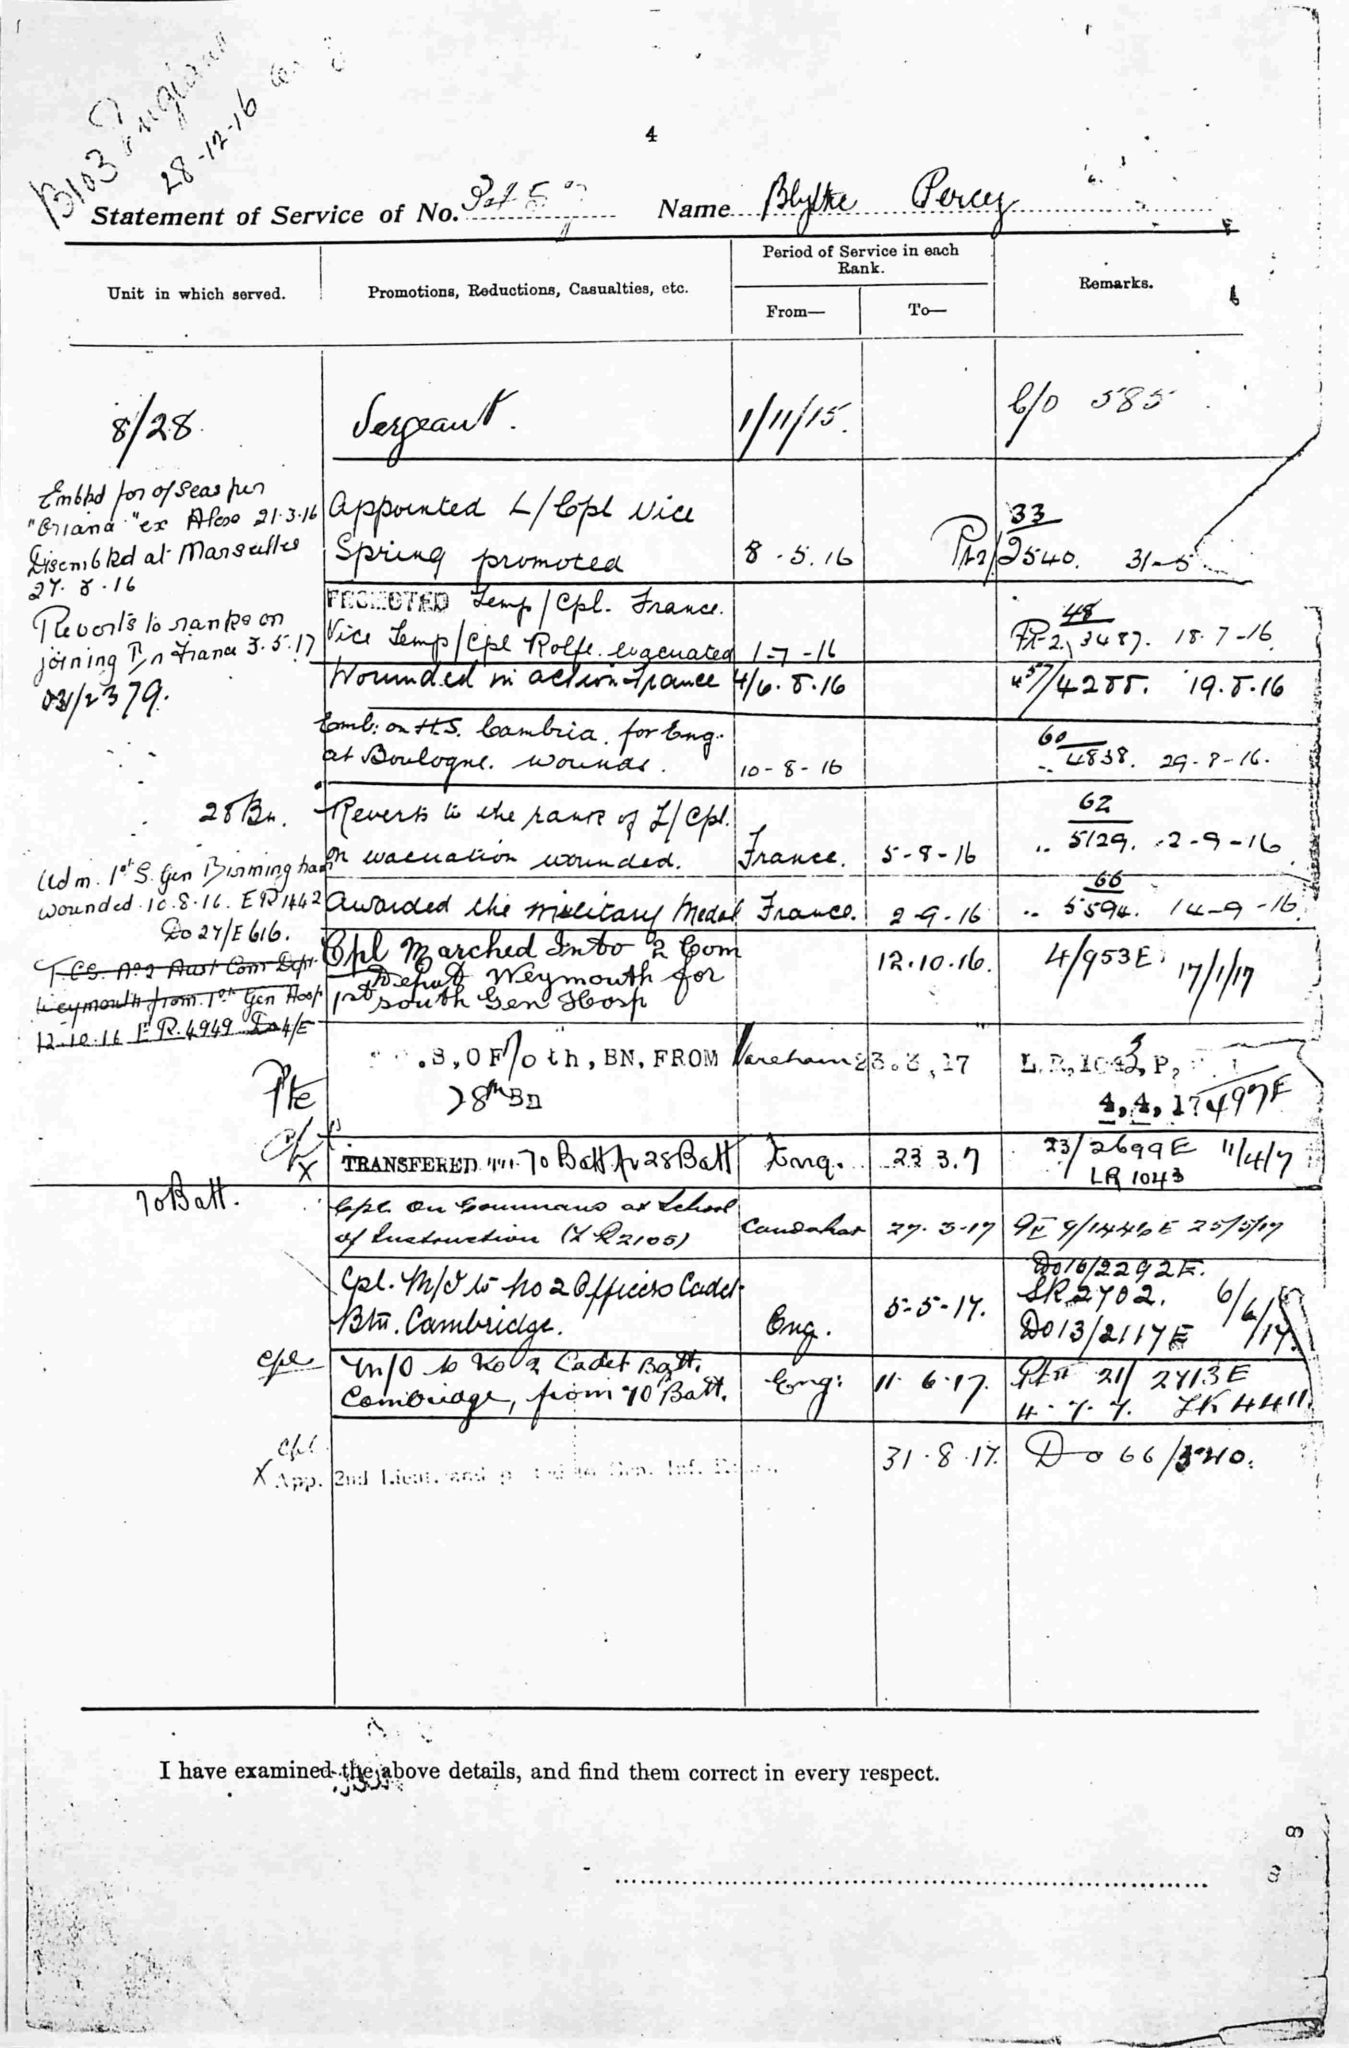 4
B103 England
28-12-16
Statement of Service of No. Name Blythe Percey
Unit in which served.
Promotions, Reductions, Casualties, etc.
Period of Service in each
Rank.
From—
To—
Remarks.
8/28
Sergeant.
1/11/15.
C/O 585
Embkd for o/seas per
"Oriana" ex Alexo 21.3.16
Disembkd at Marseilles
27. 3. 16
Appointed L/Cpl vice
Spring promoted 8-5.16
33
Pt2/2540. 31-5
Reverts to ranks on
joining Bn France 3.5.17
031/2379.
PROMOTED Temp/Cpl. France.
Vice Temp/Cpl Rolfe evacuated 1-7-16
48
Pt-2, 3487. 18.7-16.
Wounded in action France 4/6.8.16
57/4288. 19.8.16
Emb: on H.S. Cambria. for Eng.
at Boulogne. wounds. 10-8-16
60
.. 4838. 29-8-16.
28 Bn.
Reverts to the rank of L/Cpl.
on evacuation wounded. France. 5-8-16
62
.. 5129. 2-9-16
Adm. 1st S. Gen Birmingham
wounded 10.8.16. E R 1442
Do 27/E616.
Awarded the Military Medal France. 2-9-16
66
.. 5594. 14-9-16
T.C.S. No 2 Aust Com Depr
Weymouth from 1st Gen Hosp
12.10.16 E R. 4949 Do 4/E
Cpl Marched Into 2 Com
Depot Weymouth for
1st South Gen Hosp
12.10.16.
4/953E 17/1/17
.S, OF 70th, BN, FROM Wareham 23.3,17
28th Bn
L.R, 1043, P,
4, 4, 17 497E
Pte
X
TRANSFERED 70 Batt fr 28 Batt Eng. 23 3.7
23/2699E 11/4/7
LR 1043
70 Batt.
Cpl. on Command at School
of Instruction (LR2105) Candahar 27.3-17 9/1446E 25/5/17
Cpl. M/I to No 2 Officers Cadet
Btn. Cambridge. Eng. 5-5-17.
Do16/2292E.
LR 2702. 6/6/17.
Do13/2117E
Cpl
M/O to No 2 Cadet Batt.
Cambridge, from 70 Batt. Eng: 11.6.17.
Pt II 21/2713E
4.7.7. LR 4411.
Cpl
X App. 2nd Lieut. and Gen. Inf. 31.8.17. Do 66/
I have examined the above details, and find them correct in every respect.
8